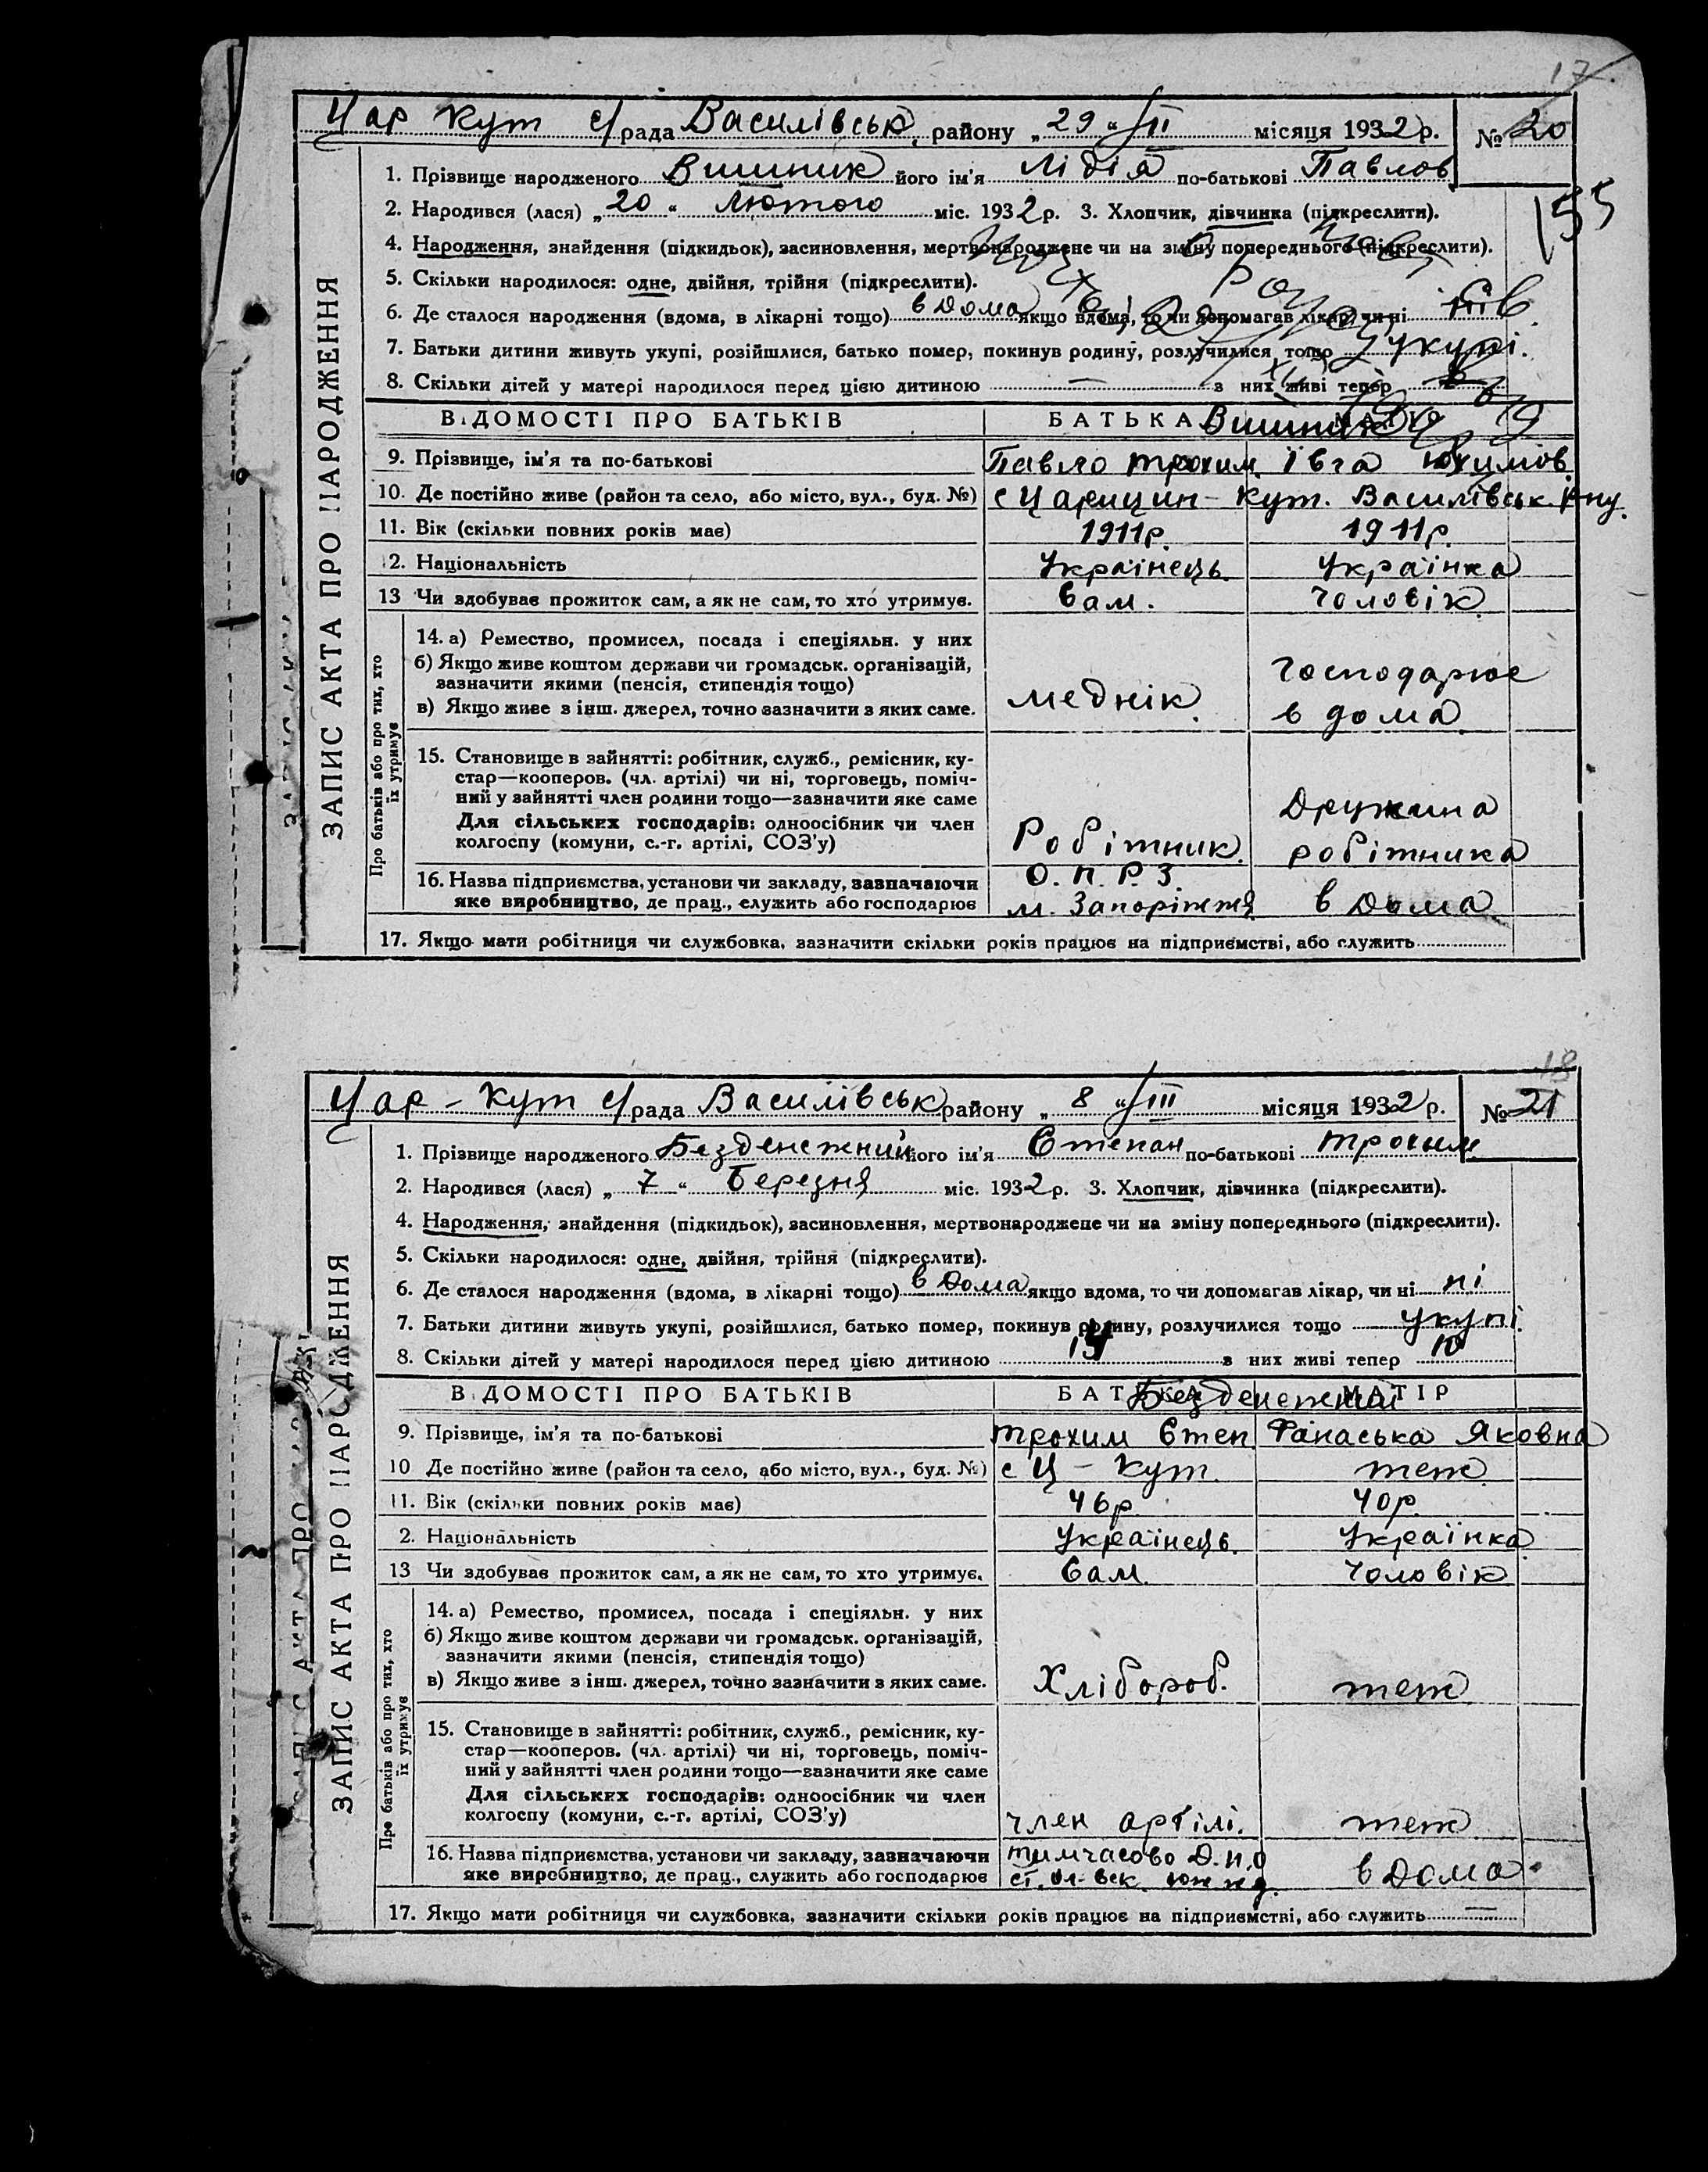 17
Цар Кут с/рада Василівськ, району „29“ III місяця 1932 р. № 20
155
1. Прізвище народженого Вишник його ім'я Лідія по-батькові Павлов
2. Народився (лася) „20“ Лютого міс. 1932 р. 3. Хлопчик, дівчинка (підкреслити).
4. Народження, знайдення (підкидьок), засиновлення, мертвонароджене чи на зміну попереднього (підкреслити).
5. Скільки народилося: одне, двійня, трійня (підкреслити).
6. Де сталося народження (вдома, в лікарні тощо) в дома якщо вдома, то чи допомагав лікар, чи ні
7. Батьки дитини живуть укупі, розійшлися, батько помер, покинув родину, розлучилися тощо укупі.
8. Скільки дітей у матері народилося перед цією дитиною — з них живі тепер
ВІДОМОСТІ ПРО БАТЬКІВ БАТЬКА Вишник
9. Прізвище, ім'я та по-батькові Павло Трохим. Івга Юхимов
10. Де постійно живе (район та село, або місто, вул., буд. №) с Царицин-Кут. Василівськ. р-ну.
11. Вік (скільки повних років має) 1911р. 1911р.
12. Національність Українець. Українка
13 Чи здобуває прожиток сам, а як не сам, то хто утримує. Сам. Чоловік
ЗАПИС АКТА ПРО НАРОДЖЕННЯ
Про батьків або про тих, хто їх утримує
14. а) Ремество, промисел, посада і спеціяльн. у них
б) Якщо живе коштом держави чи громадськ. організацій,
зазначити якими (пенсія, стипендія тощо)
в) Якщо живе з інш. джерел, точно зазначити з яких саме.
меднік. господарює
в дома
15. Становище в зайнятті: робітник, служб., ремісник, ку-
стар—кооперов. (чл. артілі) чи ні, торговець, поміч-
ний у зайнятті член родини тощо—зазначити яке саме
Для сільських господарів: одноосібник чи член
колгоспу (комуни, с.-г. артілі, СОЗ'у)
Робітник. Дружина
робітника
16. Назва підприємства, установи чи закладу, зазначаючи О. П. Р. З.
яке виробництво, де прац., служить або господарює м. Запоріжжя в дома
17. Якщо мати робітниця чи службовка, зазначити скільки років працює на підприємстві, або служить
18
Цар-Кут с/рада Василівськ району „8“ III місяця 1932 р. № 21
1. Прізвище народженого Безденежний його ім'я Степан по-батькові Трохим
2. Народився (лася) „7“ Березня міс. 1932 р. 3. Хлопчик, дівчинка (підкреслити).
4. Народження, знайдення (підкидьок), засиновлення, мертвонароджене чи на зміну попереднього (підкреслити).
5. Скільки народилося: одне, двійня, трійня (підкреслити).
6. Де сталося народження (вдома, в лікарні тощо) в дома якщо вдома, то чи допомагав лікар, чи ні ні
7. Батьки дитини живуть укупі, розійшлися, батько помер, покинув родину, розлучилися тощо укупі.
8. Скільки дітей у матері народилося перед цією дитиною з них живі тепер 10
ВІДОМОСТІ ПРО БАТЬКІВ БАТЬКА Безденежний МАТІР
9. Прізвище, ім'я та по-батькові Трохим Степ. Фанаська Яковна
10 Де постійно живе (район та село, або місто, вул., буд. №) с Ц-Кут. теж
11. Вік (скільки повних років має) 46р 40р.
2. Національність Українець. Українка
13 Чи здобуває прожиток сам, а як не сам, то хто утримує. Сам. Чоловік
ЗАПИС АКТА ПРО НАРОДЖЕННЯ
Про батьків або про тих, хто їх утримує
14. а) Ремество, промисел, посада і спеціяльн. у них
б) Якщо живе коштом держави чи громадськ. організацій,
зазначити якими (пенсія, стипендія тощо)
в) Якщо живе з інш. джерел, точно зазначити з яких саме.
Хлібороб. теж
15. Становище в зайнятті: робітник, служб., ремісник, ку-
стар—кооперов. (чл. артілі) чи ні, торговець, поміч-
ний у зайнятті член родини тощо—зазначити яке саме
Для сільських господарів: одноосібник чи член
колгоспу (комуни, с.-г. артілі, СОЗ'у)
член артілі. теж
16. Назва підприємства, установи чи закладу, зазначаючи тимчасово
яке виробництво, де прац., служить або господарює в дома
17. Якщо мати робітниця чи службовка, зазначити скільки років працює на підприємстві, або служить —